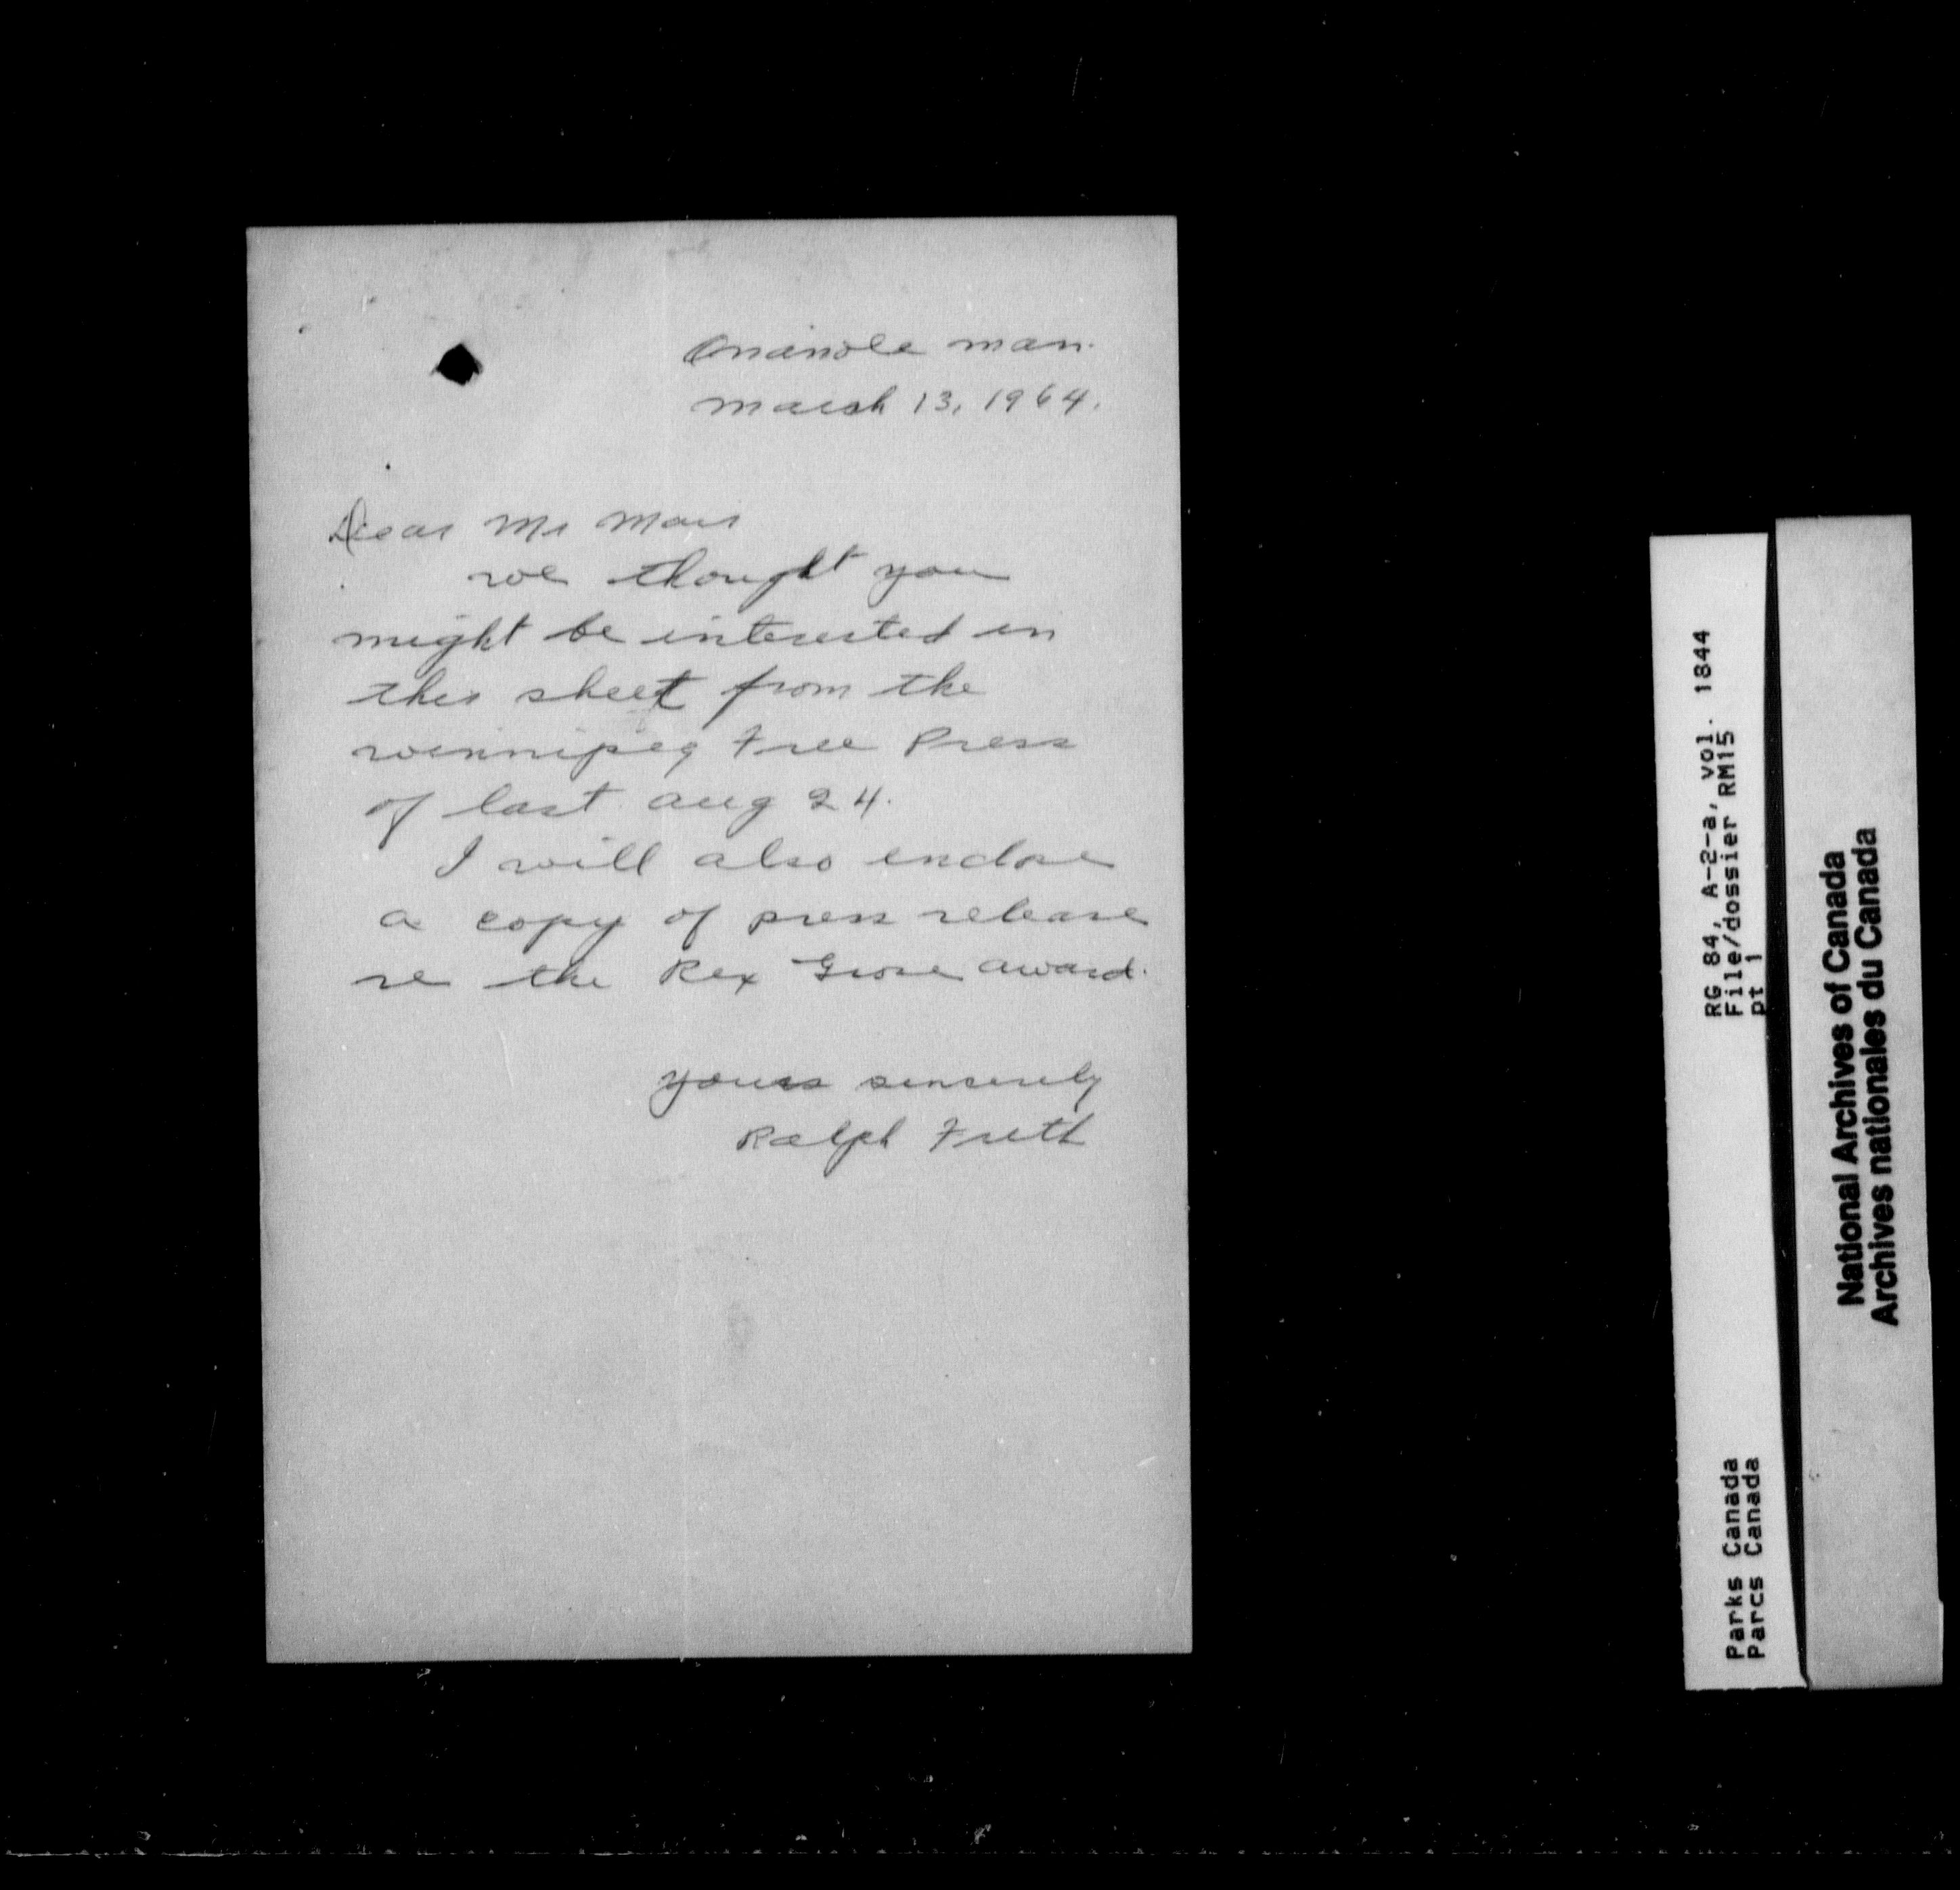 Onanole man.
march 13, 1964.
Dear Mr
we thought you
might be interested in
this sheet from the
winnipeg Free Press
of last aug 24.
I will also enclose
a copy of press release
re the Rex Grose award.
yours sincerely
Ralph Frith
RG 84, A-2-a, vol. 1844
File/dossier RM15
pt 1
Parks Canada
Parcs Canada
National Archives of Canada
Archives nationales du Canada